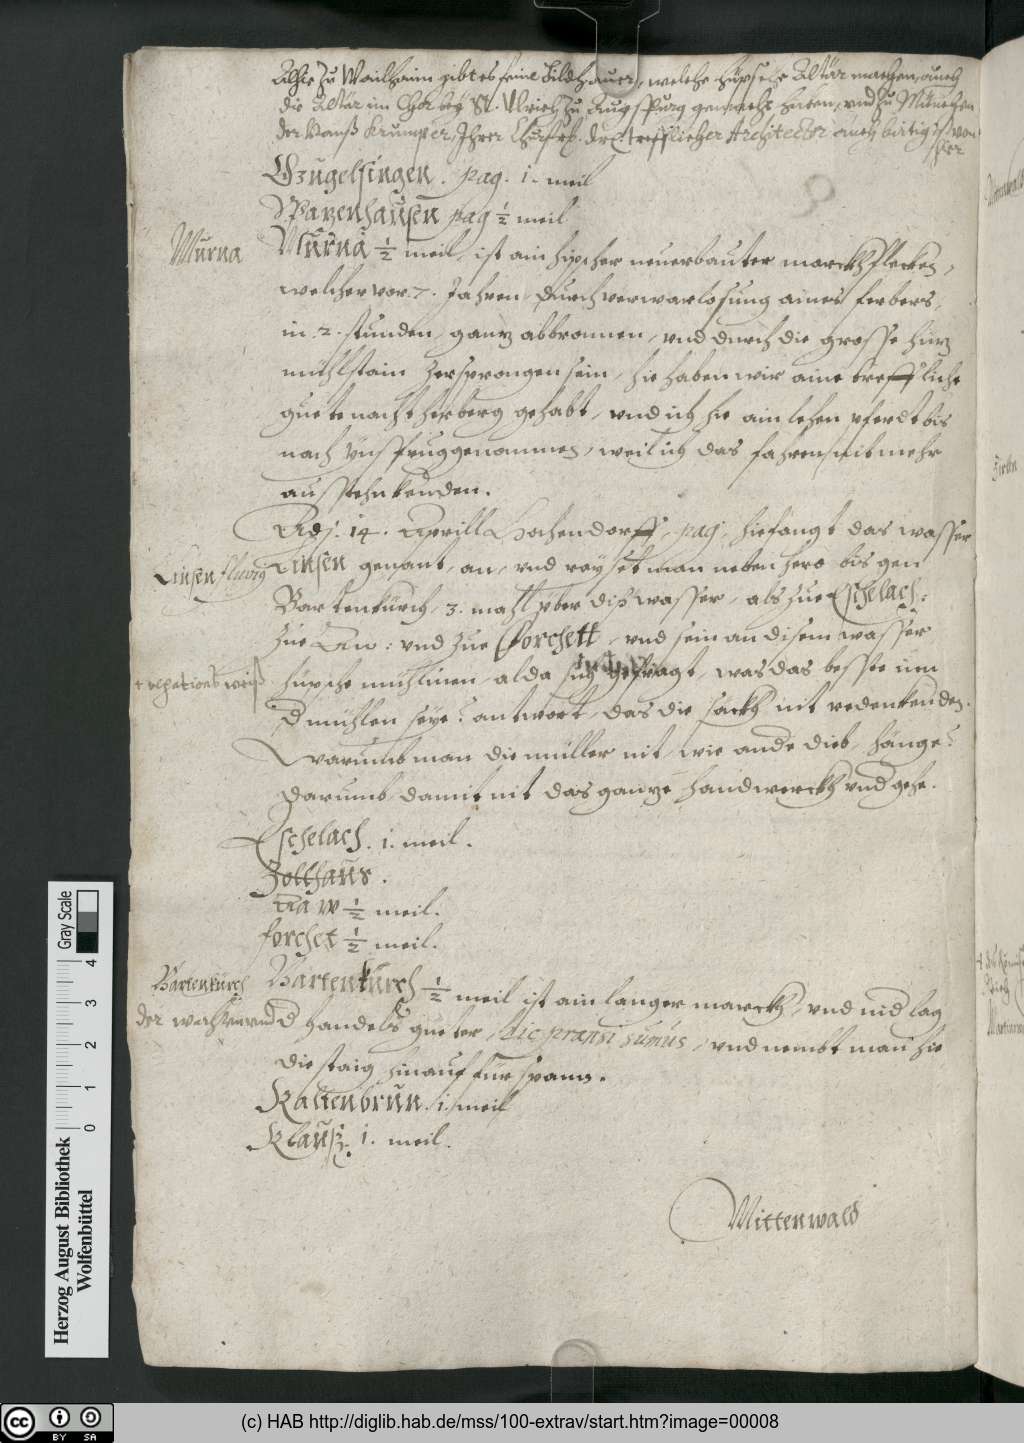 Alhie zu Weilhaim gibt es feine Bildhauer, welche hüpsche Altär machen, auch
die Altär im Chor bey St. Ulrich zu Augspurg gemacht haben, und zu München
der Hanß Krumper, Ihrer Churfrl. Drl. trefflicher Architector auch birtig ist von
hier
Etzugelfingen. pag. 1. meil
Spatzenhausen pag ½ meil
Murna
Murna ½ meil, ist ain hipscher neuerbauter marckhflecken,
welcher vor 7. Jahren durch verwarlosung aines ferbers,
in 2. stunden, gantz abbronnen, und durch die grosse hitz
mühlstain zersprongen sein, hie haben wir aine treffliche
guete nachtherberg gehabt, und ich hie ain lehen pferdt bis
nach Ynspruggenommen, weil ich das fahren nit mehr
ausstehn kenden.
Adj. 14. Aprill Hochendorff, pag, hie fangt das wasser
Linsen fluvig
Linsen genant, an, und rayset man neben hero bis gen
Bartenkürch, 3. mahl über diß wasser, als zue Eschelach:
zue Aw: und zue Forchett, und sein an disem wasser
+ vexations weiß
hüpsche mühlinen, alda ich gefragt, was das beste um
d mühlen seye? antwort, das die säckh nit reden kenden.
Warumb man die müller nit, wie ande dieb, hänge?
darumb, damit nit das gantze handwerckh und gehe.
Eschelach. 1. meil.
Zollhaus.
Aaw ½ meil.
Forchet ½ meil.
Bartenkürch
Bartenkürch ½ meil ist ain langer marckh, und nid lag
der
d handels gueter, hic pransi sumus, und nembt man hie
die staig hinauf fürspann.
Kaltenbrun. 1. meil
Klauß. 1. meil.
Mittenwald
Gray Scale
0 1 2 3 4
Herzog August Bibliothek
Wolfenbüttel
cc BY SA
(c) HAB http://diglib.hab.de/mss/100-extrav/start.htm?image=00008